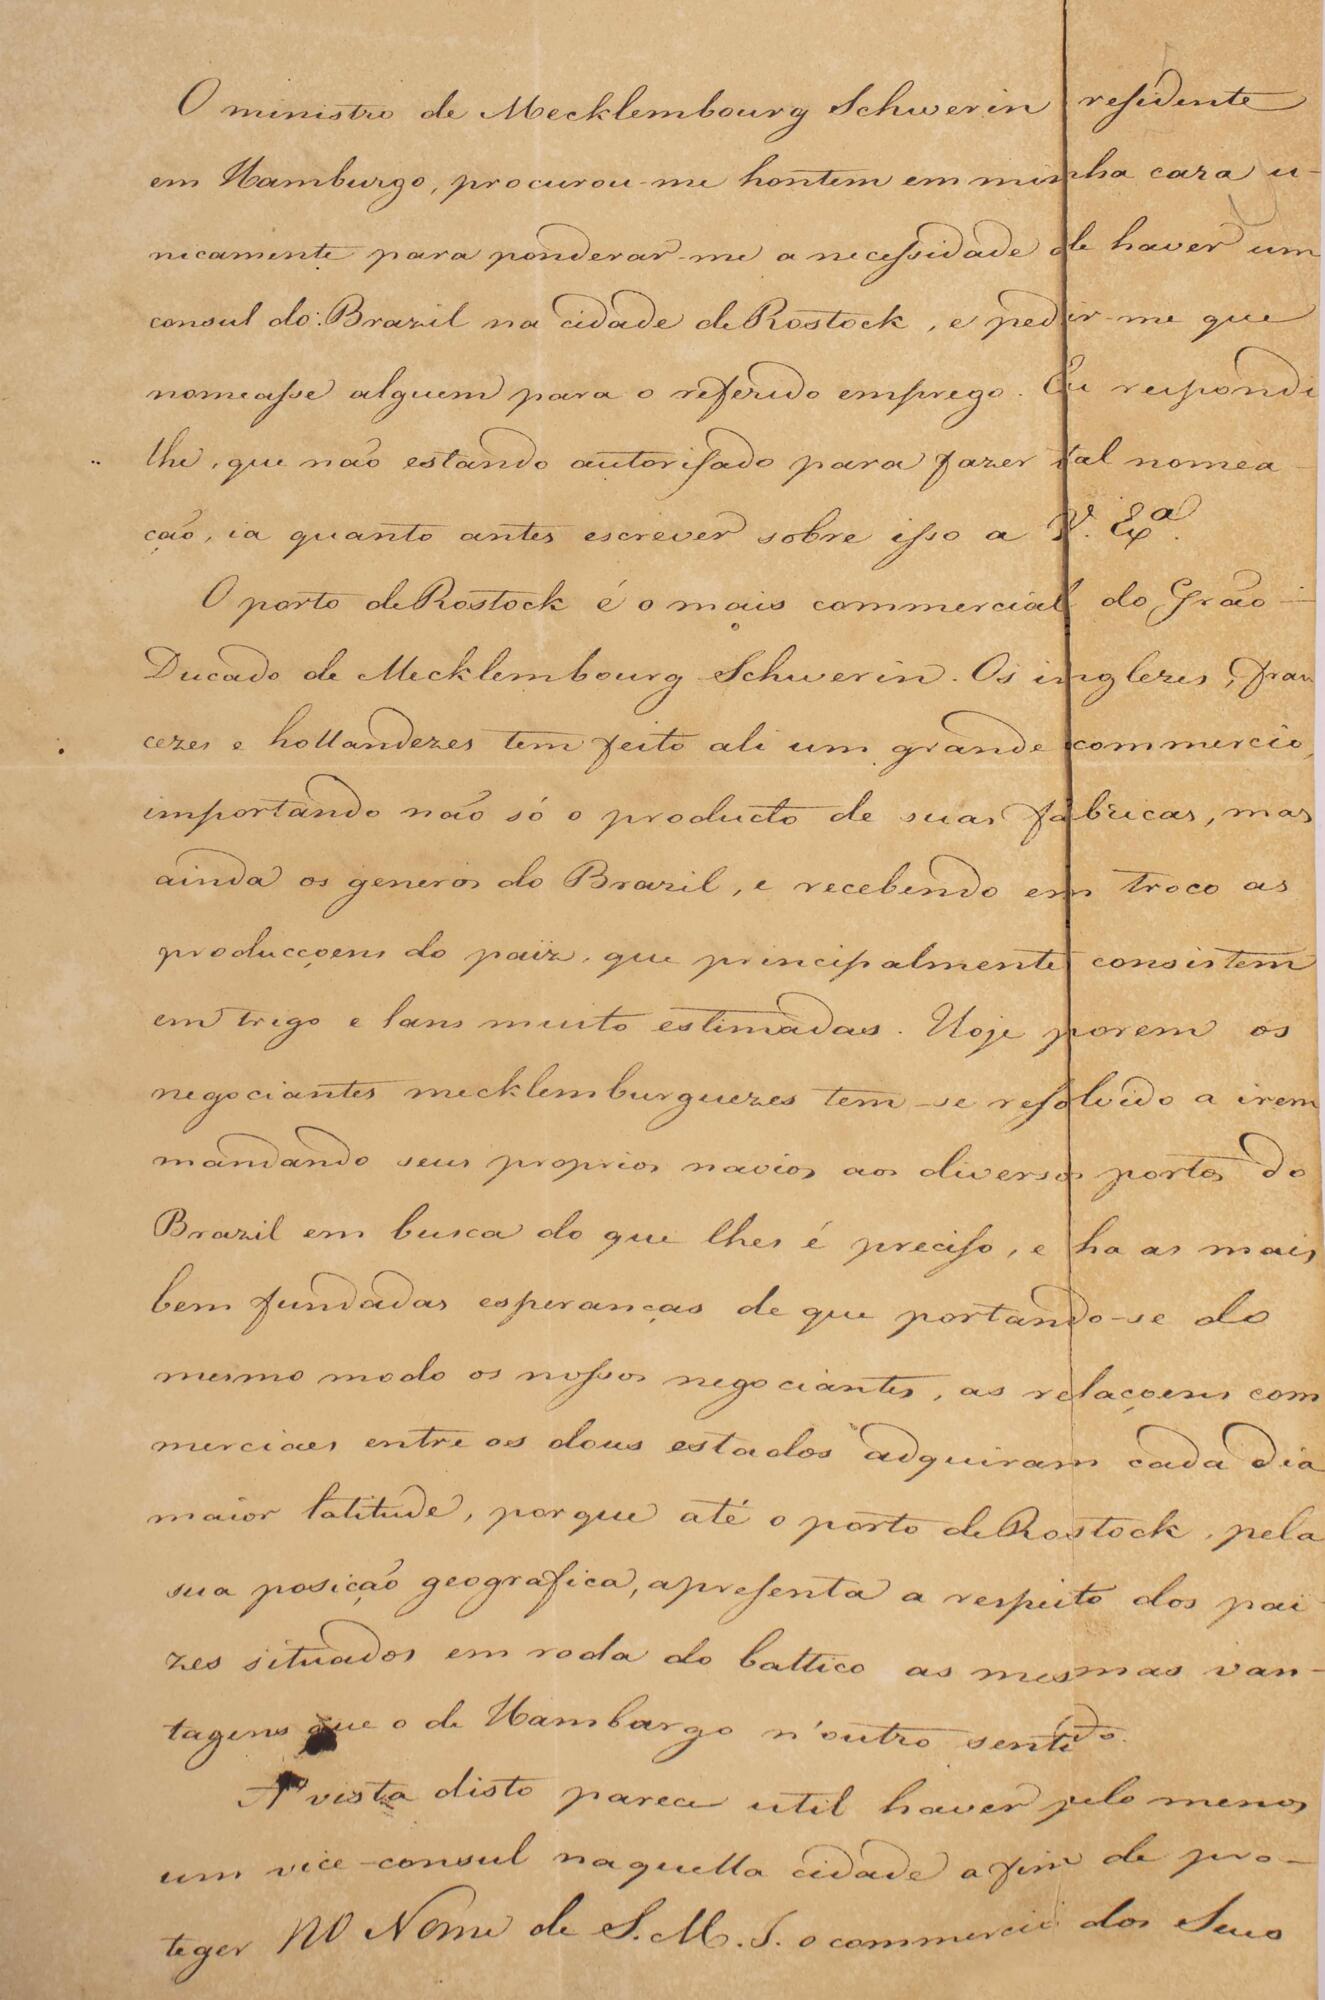 O ministro de Mecklembourg Schwerin residente
em Hamburgo, procurou-me hontem em minha caza u-
nicamente para ponderar-me a necessidade de haver um
consul do Brazil na cidade de Rostock, e pedir-me que
nomeasse alguem para o referido emprego. Eu respondi
lhe, que não estando autorisado para fazer tal nomea-
ção, ia quanto antes escrever sobre isso a V. Exª.
O porto de Rostock é o mais commercial do Grão-
Ducado de Mecklembourg Schwerin. Os inglezes, fran
cezes e hollandezes tem feito ali um grande commercio,
importando não só o producto de suas fabricas, mas
ainda os generos do Brazil, e recebendo em troco as
producçoens do paiz, que principalmente consistem
em trigo e lans muito estimadas. Hoje porem os
negociantes mecklemburguezes tem-se resolvido a irem
mandando seus proprios navios aos diversos portos do
Brazil em busca do que lhes é preciso, e ha as mais
bem fundadas esperanças de que portando-se do
mesmo modo os nossos negociantes, as relaçoens com
merciaes entre os dous estados adquiram cada dia
maior latitude, porque até o porto de Rostock, pela
sua posição geografica, apresenta a respeito dos pai
zes situados em roda do baltico as mesmas van-
tagens que o de Hamburgo n'outro sentido.
A' vista disto parece util haver pelo menos
um vice-consul naquella cidade a fim de pro-
teger no Nome de S. M. I. o commercio dos Seus